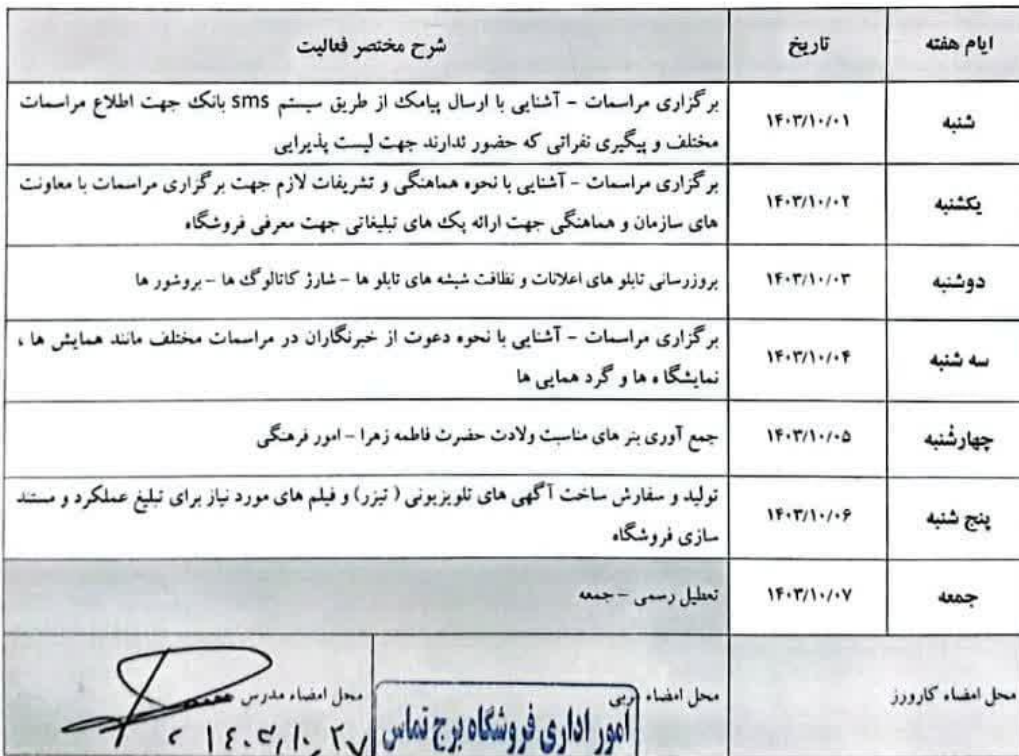 ایام هفته
تاریخ
شرح مختصر فعالیت
شنبه
۱۴۰۳/۱۰/۰۱
برگزاری مراسمات - آشنایی با ارسال پیامک از طریق سیستم sms بانک جهت اطلاع مراسمات
مختلف و پیگیری نفراتی که حضور ندارند جهت لیست پذیرایی
یکشنبه
۱۴۰۳/۱۰/۰۲
برگزاری مراسمات - آشنایی با نحوه هماهنگی و تشریفات لازم جهت برگزاری مراسمات با معاونت
های سازمان و هماهنگی جهت ارائه پک های تبلیغاتی جهت معرفی فروشگاه
دوشنبه
۱۴۰۳/۱۰/۰۳
بروزرسانی تابلو های اعلانات و نظافت شیشه های تابلو ها - شارژ کاتالوگ ها - بروشور ها
سه شنبه
۱۴۰۳/۱۰/۰۴
برگزاری مراسمات - آشنایی با نحوه دعوت از خبرنگاران در مراسمات مختلف مانند همایش ها ،
نمایشگا ه ها و گرد همایی ها
چهارشنبه
۱۴۰۳/۱۰/۰۵
جمع آوری بنر های مناسبت ولادت حضرت فاطمه زهرا - امور فرهنگی
پنج شنبه
۱۴۰۳/۱۰/۰۶
تولید و سفارش ساخت آگهی های تلویزیونی ( تیزر) و فیلم های مورد نیاز برای تبلیغ عملکرد و مستند
سازی فروشگاه
جمعه
۱۴۰۳/۱۰/۰۷
تعطیل رسمی - جمعه
محل امضاء کارورز
محل امضاء
امور اداری فروشگاه برج تماس
محل امضاء مدرس